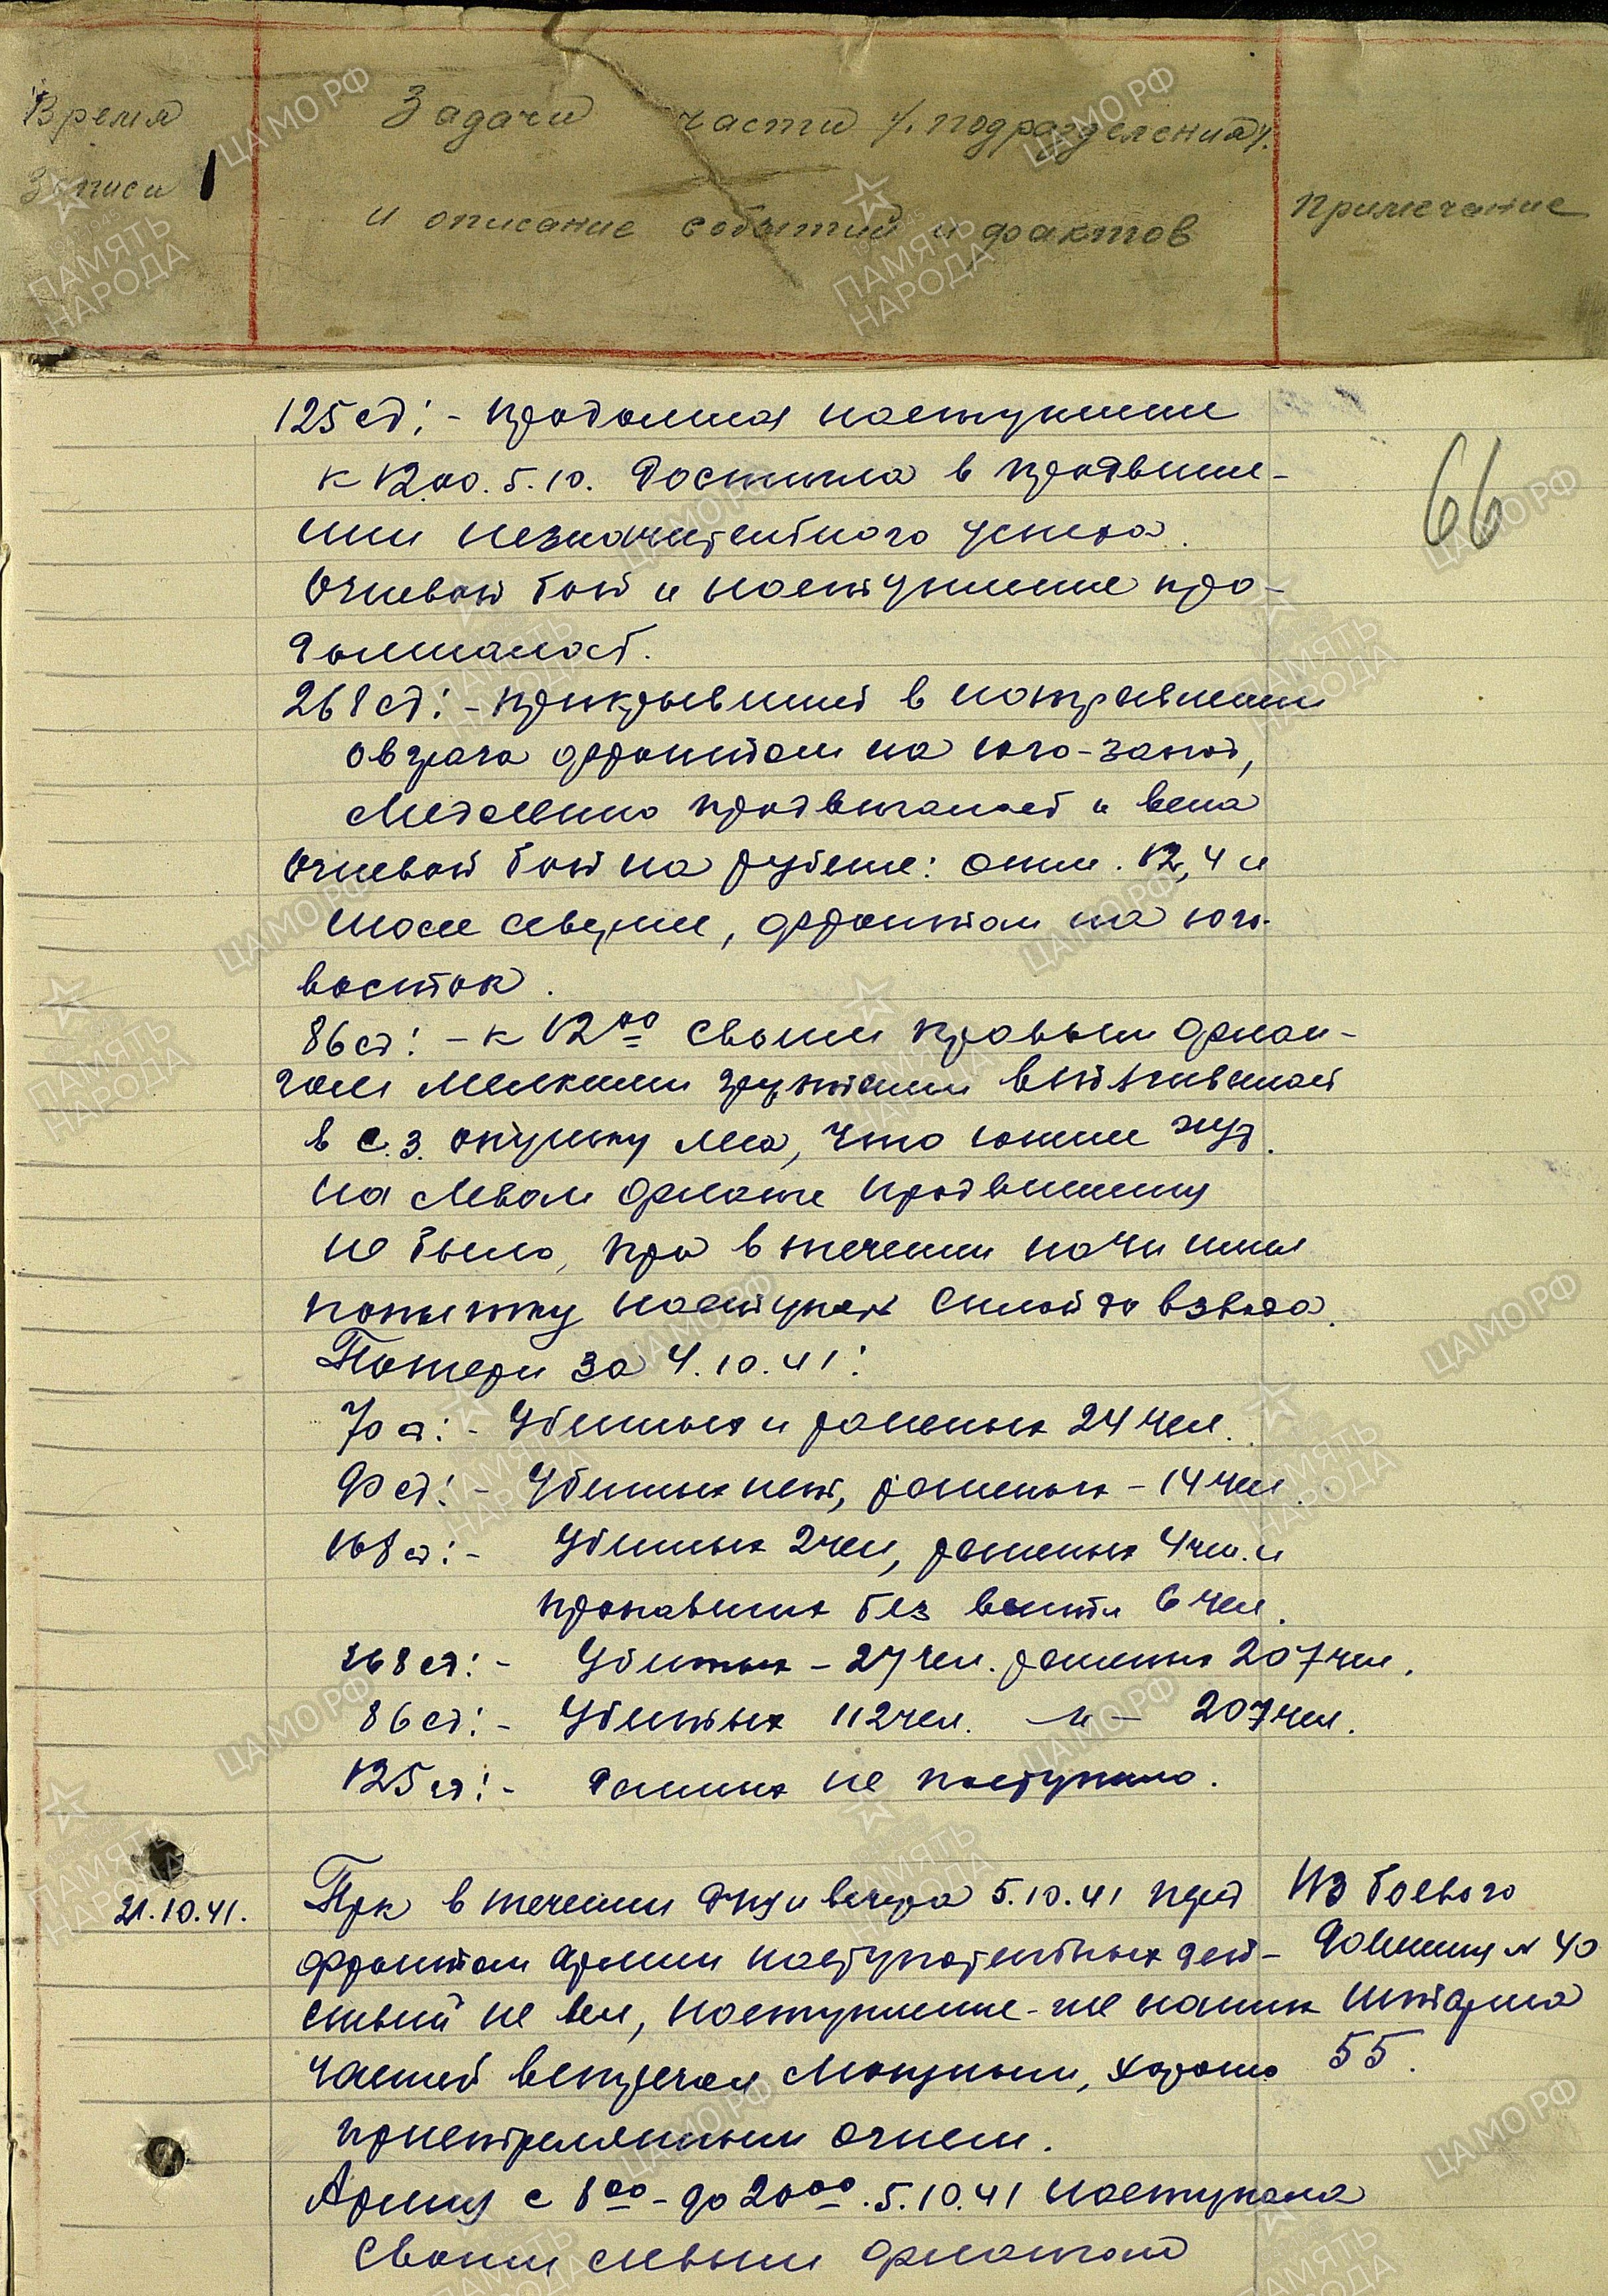 Время
Записи
Задачи части /подразделения/
и описание событий и фактов
Примечание
66
125 сд: - продолжая наступление
к 12.00. 5.10. достигла в продвиже-
нии незначительного успеха.
Огневой бой и наступление про-
должалось.
268 сд: - прикрывшись в направлении
оврага фронтом на юго-запад,
медленно продвигалась и вела
огневой бой на рубеже: отм. 12,4 и
шоссе севернее, фронтом на юго-
восток.
86 сд: - к 12 00 своим правым флан-
гом мелкими группами втягивалась
в с.з. опушку леса, что южнее
На левом фланге продвижения
не было, пр-к в течении ночи имел
попытку наступать силой до взвода.
Потери за 4.10.41:
70 сд: - Убитых и раненых 24 чел.
90 сд: - Убитых нет, раненых - 14 чел.
168 сд: - Убитых 2 чел, раненых 4 чел. и
пропавших без вести 6 чел.
268 сд: - Убитых - 27 чел. раненых 207 чел.
86 сд: - Убитых 112 чел. -"- 207 чел.
125 сд: - Данных не поступило.
21.10.41.
Пр-к в течении дня и вечера 5.10.41 перед
фронтом Армии наступательных дей-
ствий не вел, наступление-же наших
частей встречал мощным, хорошо
пристрелянным огнем.
Армия с 8 00 - до 20 00. 5.10.41 наступала
своим левым флангом
Из боевого
донесения № 40
штарма
55.
ЦАМО РФ
ПАМЯТЬ
НАРОДА